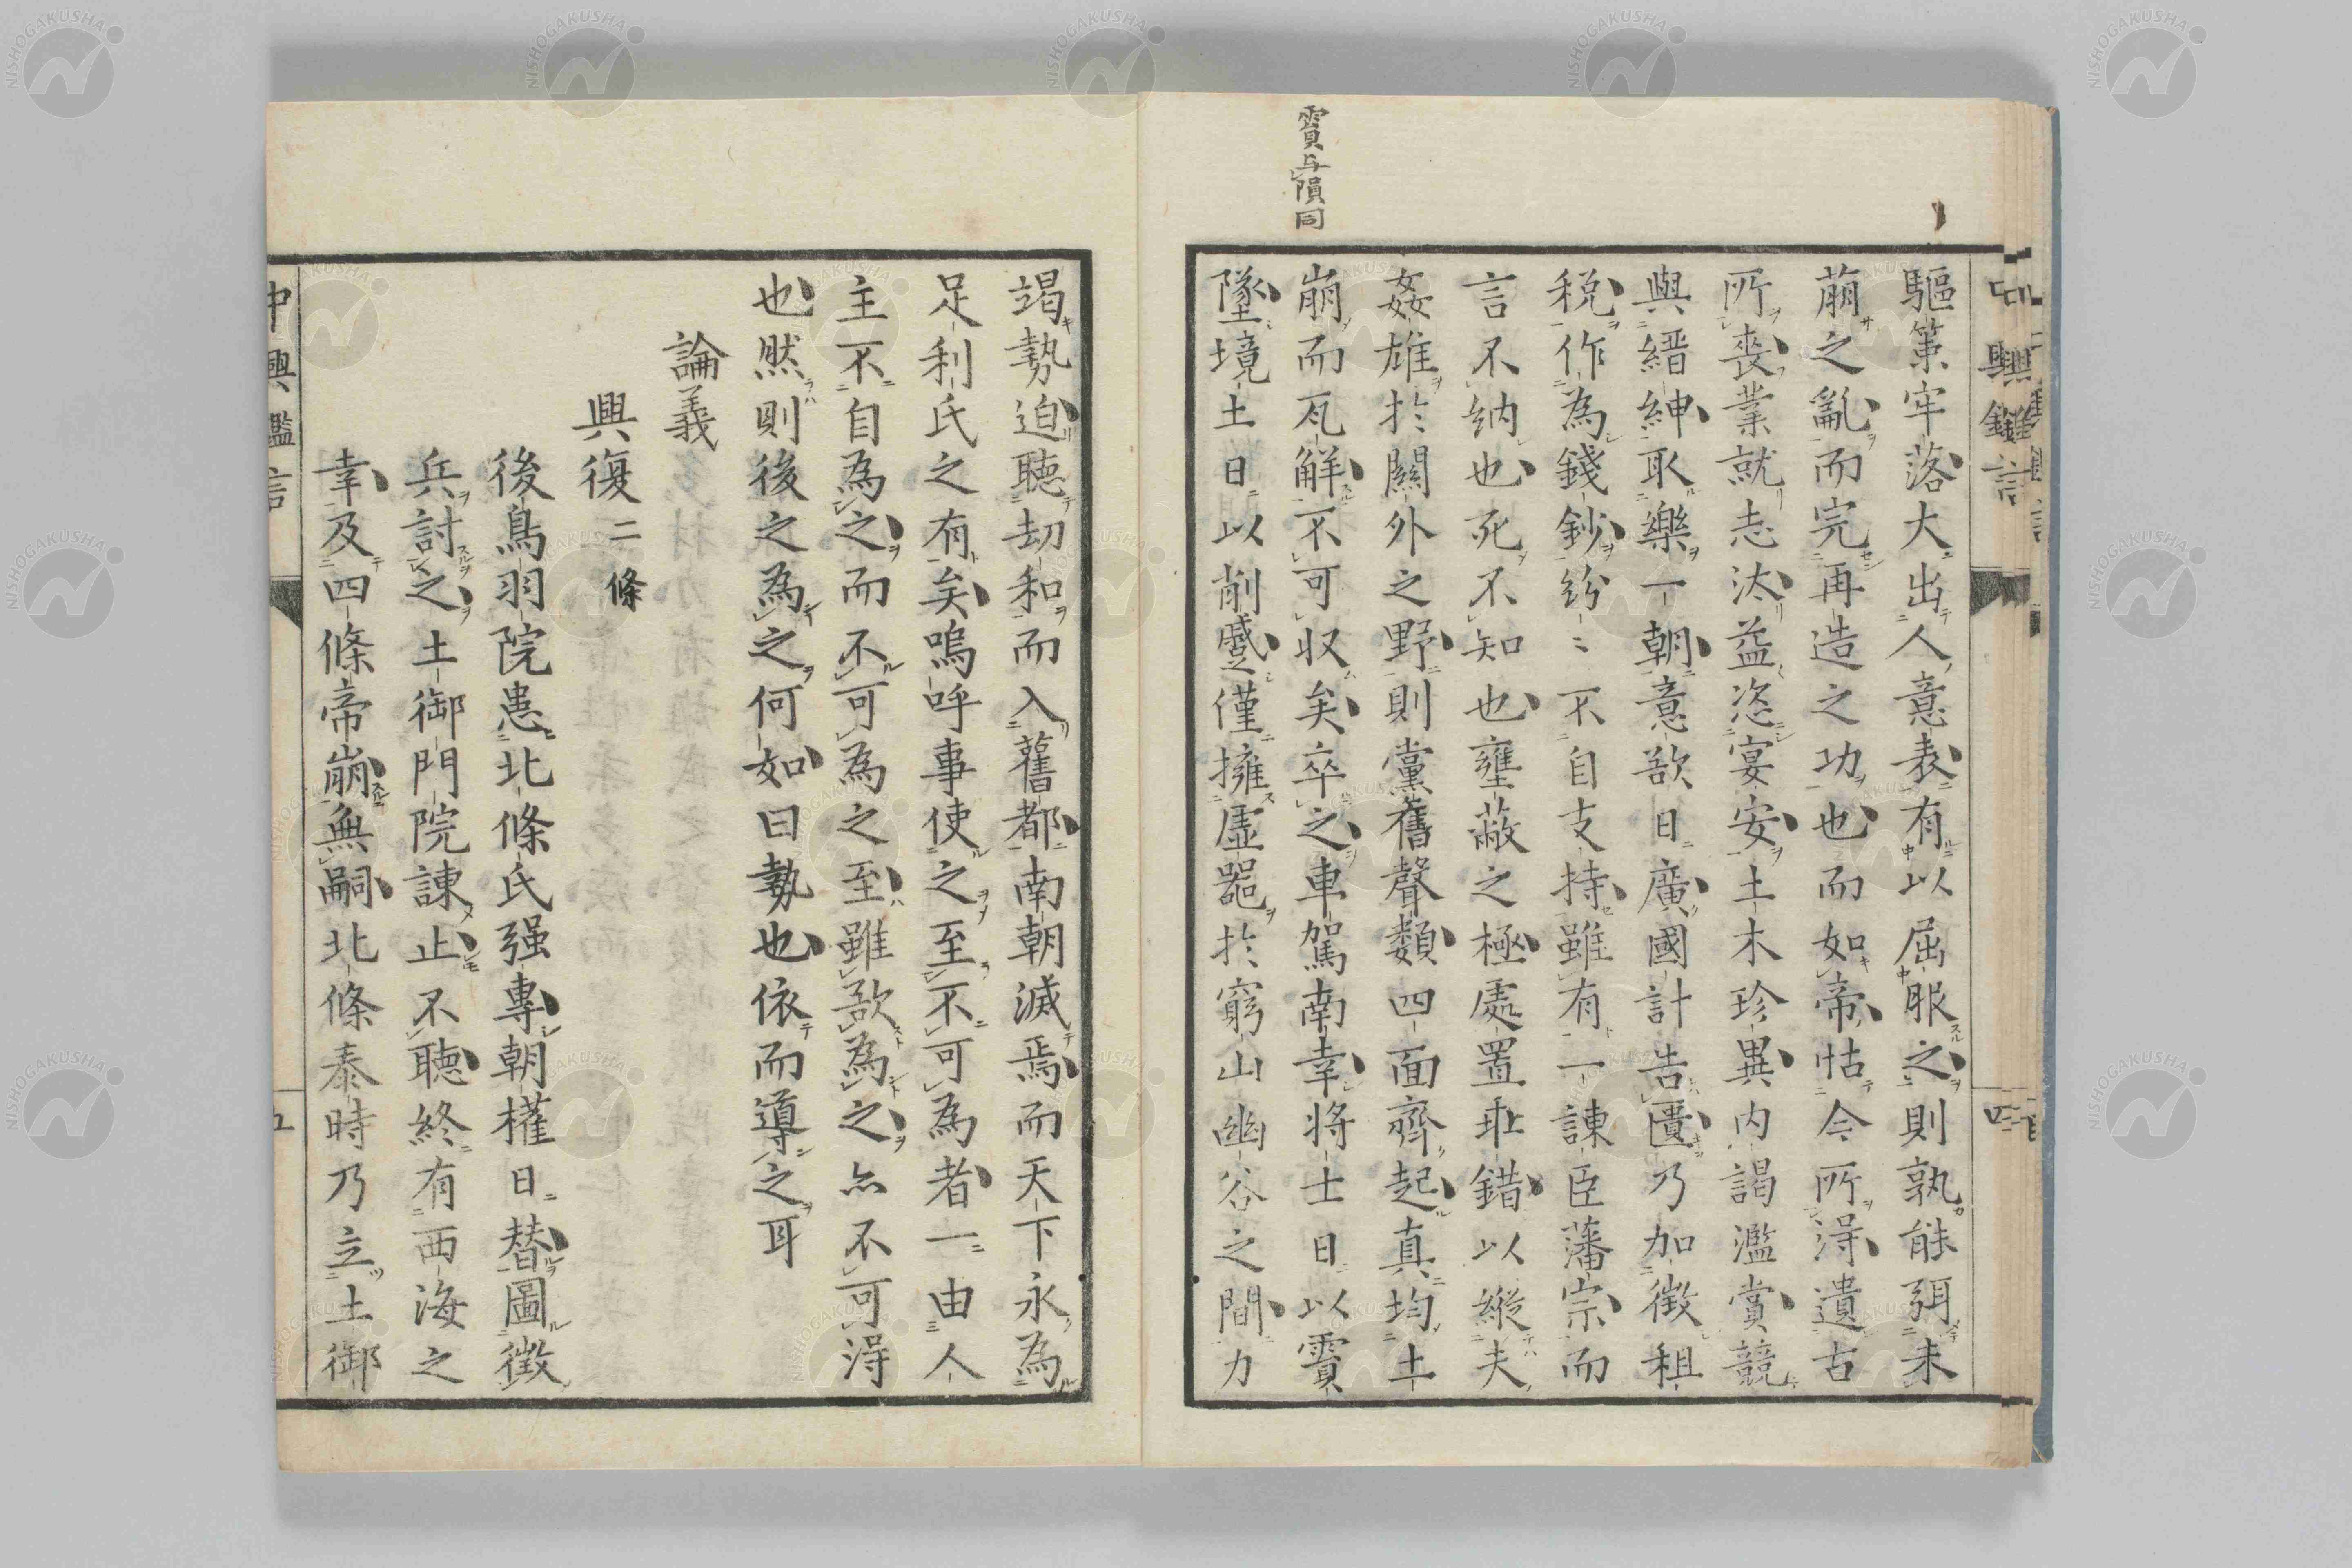 賈與隕同
驅策牢落大出人意表有以屈服之則孰能弭未
萠之亂而完再造之功也而如帝怙今所得遺古
所喪業就志汰益恣宴安土木珍異内謁濫賞競
與縉紳取樂一朝意欲日廣國計告匱乃加徴租
税作為錢鈔紛〻不自支持雖有一諫臣藩宗而
言不納也死不知也壅蔽之極處置乖錯以縱夫
姦雄於關外之野則黨舊聲類四面齊起真均土
崩而瓦解不可収矣卒之車駕南幸将士日以霣
墜境土日以削蹙僅擁虛器於窮山幽谷之間力
竭勢迫聽刧和而入舊都南朝滅焉而天下永為
足利氏之有矣嗚呼事使之至不可為者一由人
主不自為之而不可為之至雖欲為之亦不可得
也然則後之為之何如曰勢也依而導之耳
論義
興復二條
後鳥羽院患北條氏强專朝權日替圖徴
兵討之土御門院諫止不聽終有西海之
幸及四條帝崩無嗣北條泰時乃立土御
中興鑑言
五
中興鑑言
四